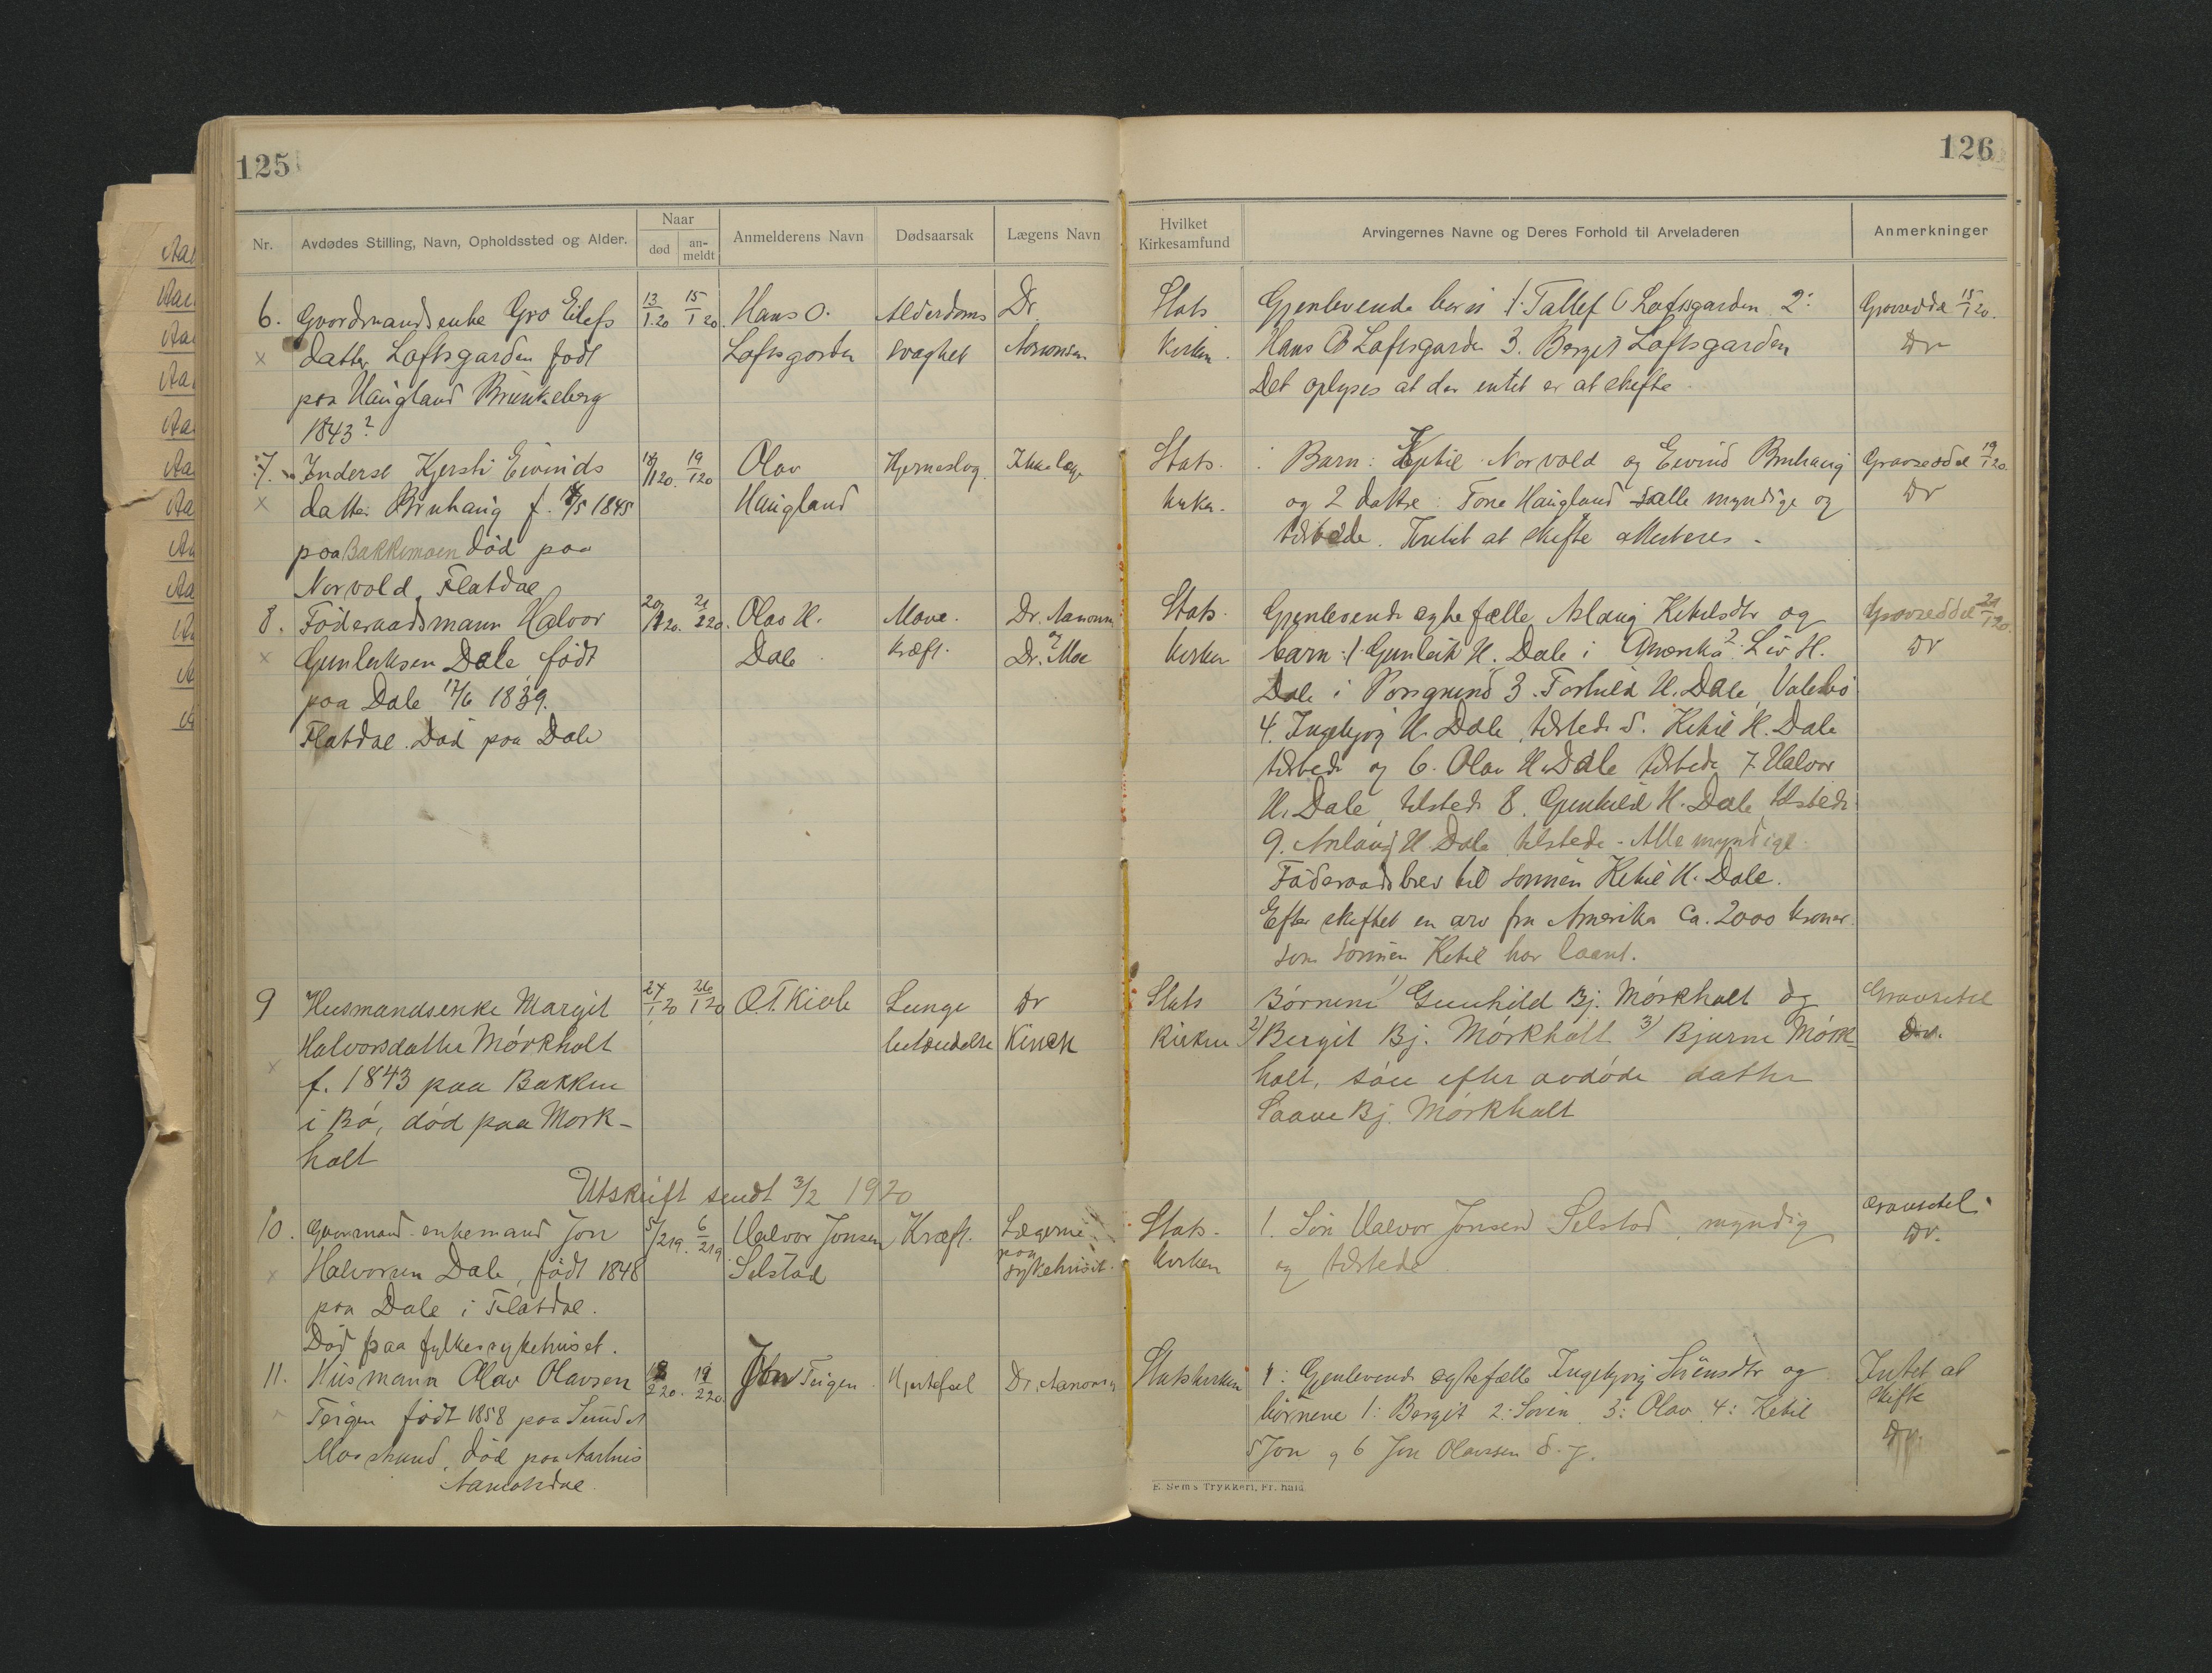 125
126
Nr. Avdødes Stilling, Navn, Opholdssted og Alder. Naar død an-meldt Anmelderens Navn Dødsaarsak Lægens Navn
Hvilket Kirkesamfund Arvingernes Navne og Deres Forhold til Arveladeren Anmerkninger
6. Gaardmandsenke Gro Eilefs 13/1.20 15/1 20. Hans O. Alderdoms Dr.
datter Loftsgarden født Loftsgarden svaghet Aanonsen
paa Haugland Brunkeberg
1843?
Stats Gjenlevende barn 1. Tallef O Loftsgarden 2: Gravseddel 15/1 20.
Kirken. Hans O Loftsgarden 3. Bergit Loftsgarden Dr
Det oplyses at der intet er at skifte.
7. Inderst Kjersti Eivinds 18/1 20. 19/1 20 Olav Hjerneslag. Ikke læge
datter Bruhaug f. /5 1845 Haugland
paa Bakkemoen død paa
Norvold, Flatdal
Stats- Barn: Kjetil Norvold og Eivind Bruhaug Gravseddel 19/1 20.
kirken. og 2 døttre: Tone Haugland alle myndige og Dr
tilstede. Intet at skifte attesteres.
8. Føderaadsmann Halvor 20/1 20. 21/1 20. Olav H. Mave- Dr. Aanonsen
Gunleiksen Dale, født Dale kræft. og Dr. Moe
paa Dale 17/6 1839.
Flatdal. Død paa Dale
Stats- Gjenlevende egtefælle Aslaug Ketilsdtr og Gravseddel 21/1 20.
kirken barn: 1. Gunleik H. Dale i Amerika 2: Liv H. Dr
Dale i Porsgrund 3. Torhild H. Dale, Valebø
4. Ingebjørg H. Dale, tilstede 5. Ketil H. Dale
tilstede og 6. Olav H. Dale tilstede 7. Halvor
H. Dale, tilstede 8. Gunhild H. Dale, tilstede
9. Aslaug H. Dale, tilstede - Alle myndige.
Føderaadsbrev til sønnen Ketil H. Dale.
Efter skiftet en arv fra Amerika ca. 2000 kroner.
som sønnen Ketil har laant.
9 Husmandsenke Margit 24/1 20 26/1 20 O.T. Kivle Lunge Dr
Halvorsdatter Mørkholt betændelse Kinck
f. 1843 paa Bakken
i Bø, død paa Mørk-
holt
Stats Børnene 1) Gunhild Bj. Mørkholt og Gravsetel
Kirken 2) Bergit Bj. Mørkholt 3) Bjarne Mørk- Dr.
holt, søn efter avdøde datter
Saave Bj. Mørkholt
Utskrift sendt 3/2 1920
10. Gaardmand enkemand Jon 5/2 19. 6/2 19 Halvor Jonsen Kræft. Lægerne
Halvorsen Dale, født 1848 Selstad paa sykehuset.
paa Dale i Flatdal.
Død paa fylkessykehuset.
Stats- 1. Søn Halvor Jonsen Selstad, myndig Gravsetel.
kirken og tilstede. Dr.
11. Husmann Olav Olavsen 18/2 20. 19/2 20. Jon Teigen Hjertefeil Dr. Aanonsen
Teigen født 1858 paa Sundet
Mosstrand, død paa Aarhus
Aamotsdal.
Statskirken 1: Gjenlevende egtefælle Ingebjørg Sveinsdtr og Intet at
børnene 1: Bergit 2: Svein 3: Olav 4: Ketil skifte
5 Jon og 6 Jon Olavssen d. y. Dr.
E. Sem's Trykkeri, Fr.hald.